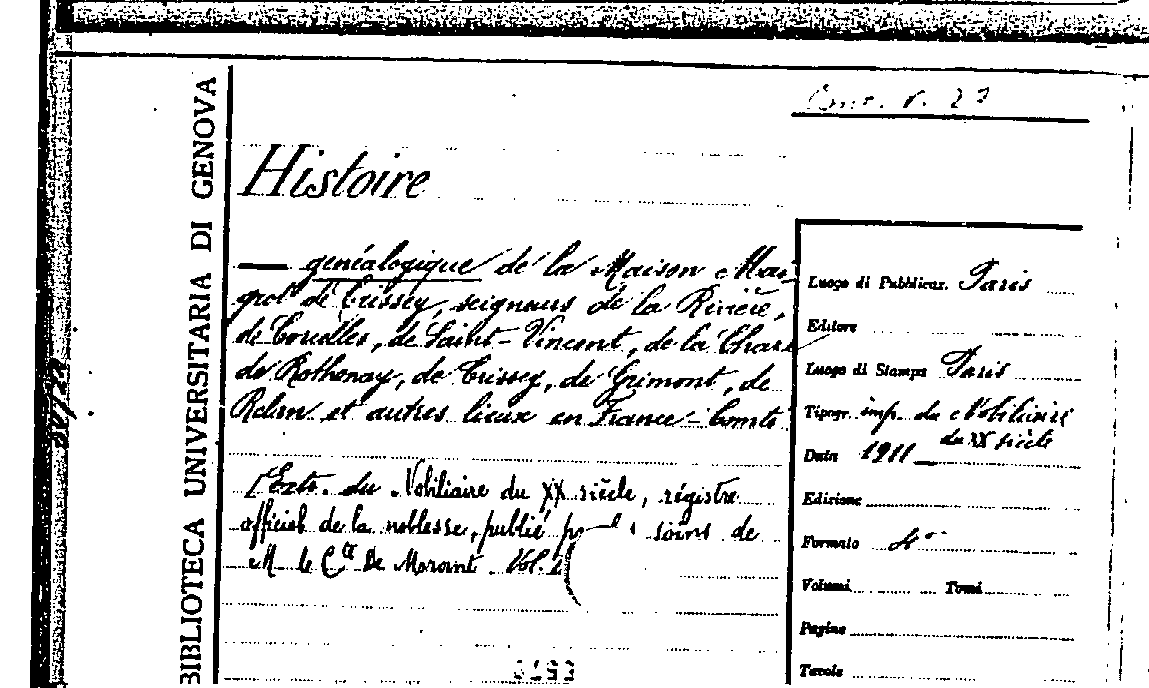 BIBLIOTECA UNIVERSITARIA DI GENOVA
Histoire
— généalogique de la Maison Mai-
grot de Crissey, seigneurs de la Rivière,
de Courelles, de Saint-Vincent, de la Chara
de Rothenay, de Crissey, de Grimont, de
et autres lieux en France-Comté
[Extr. du Nobiliaire du XX siècle, régistre
officiel de la noblesse, publié soins de
M. le Cte De Morant. Vol.
Luogo di Pubblicaz. Paris
Editore
Luogo di Stampa Paris
Tipogr. imp. du Nobiliaire
du XX siècle
Data 1911
Edizione
Formato 4°
Volumi Tomi
Pagine
Tavole